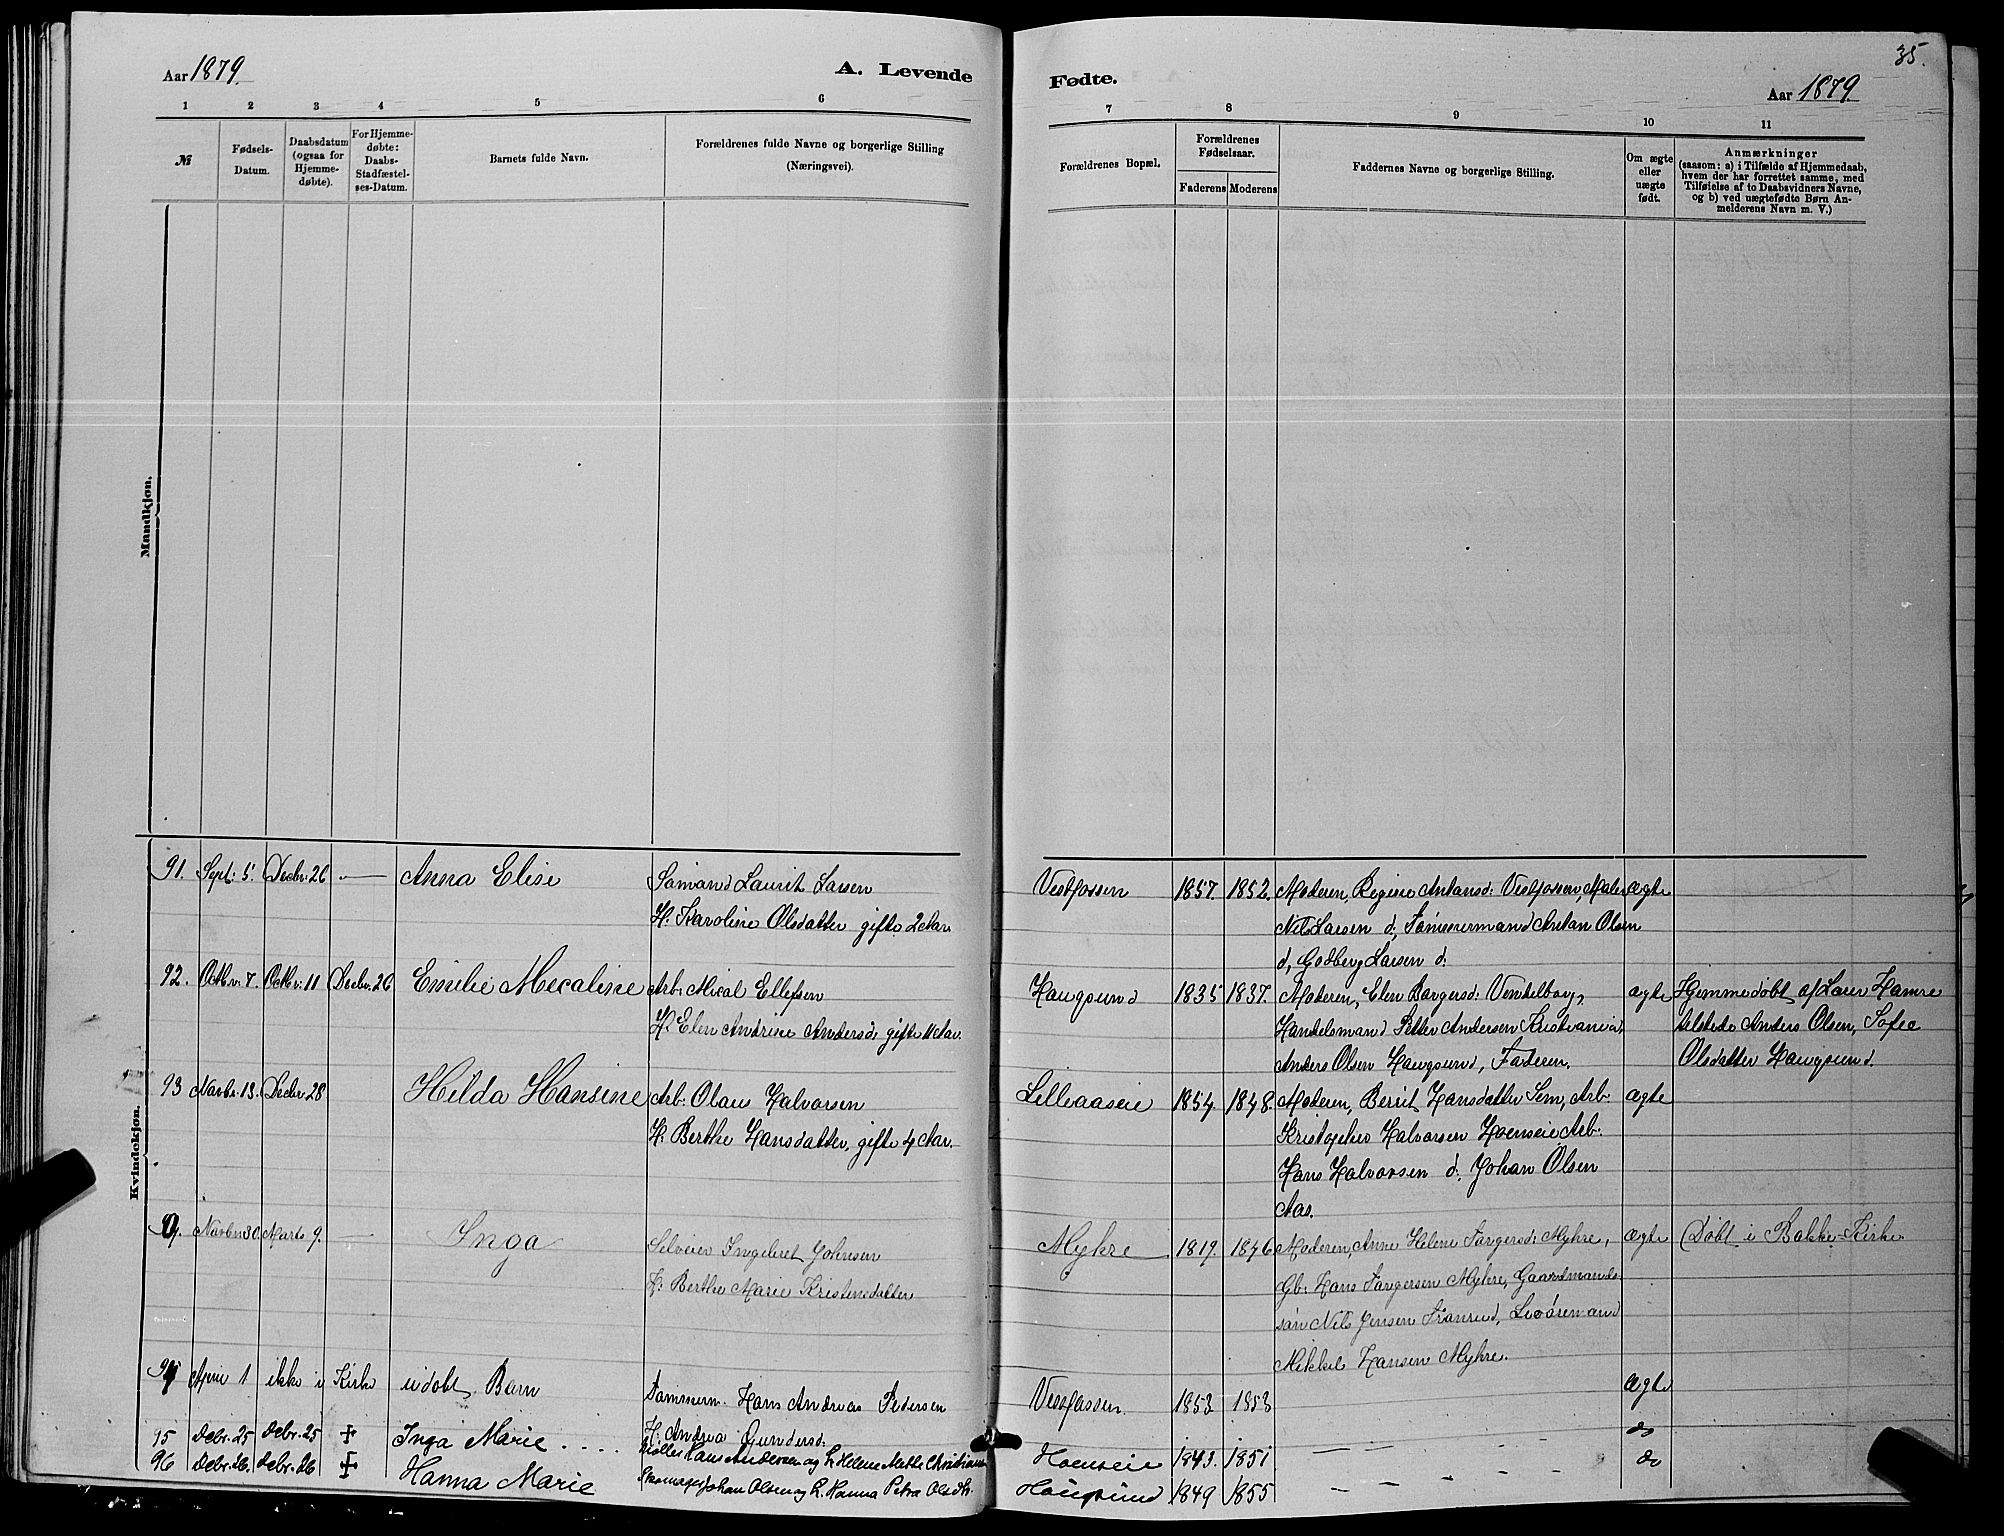 Aar 1879.
A. Levende
Fødte.
35.
Aar 1879.
1 2 3 4 5 6
7 8 9 10 11
№
Fødsels-
Datum.
Daabsdatum
(ogsaa for
Hjemme-
døbte).
For Hjemme-
døbte:
Daabs-
Stadfæstel-
ses-Datum.
Barnets fulde Navn.
Forældrenes fulde Navne og borgerlige Stilling
(Næringsvei).
Forældrenes Bopæl.
Forældrenes
Fødselsaar.
Faderens Moderens
Faddernes Navne og borgerlige Stilling.
Om ægte
eller
uægte
født.
Anmærkninger
(saasom: a) i Tilfælde af Hjemmedaab,
hvem der har forrettet samme, med
Tilføielse af to Daabsvidners Navne,
og b) ved uægtefødte Børn An-
melderens Navn m. V.)
Mandkjøn.
Kvindekjøn.
91. Sept: 5. Decbr: 26 — Anna Elise
Laurit Larsen
H: Karoline Olsdatter gifte 2 Aar
Vestfossen 1857. 1852.
Moderen, Regine Antonsd: Vestfossen, Maler
Nils Larsen d:, Tømmermand Anton Olsen
d, Godberg Larsen d:
ægte
92. Octbr: 7. Octbr: 11 Decbr: 26 Emilie Mecaline
Arb: Mical Ellefsen
H: Elen Andrine Andersd: gifte 11 Aar.
Haugsund 1835 1837.
Moderen, Elen Borgersd:
Handelsmand Petter Andersen Kristiania,
Anders Olsen Haugsund, Faderen.
ægte
Hjemmedøbt af Laur Hamre
tilstede Anders Olsen, Sofie
Olsdatter Haugsund.
93 Novbr. 13. Decbr 28 Hilda Hansine
Arb: Olaus Halvorsen
H: Berthe Hansdatter, gifte 4 Aar.
Lilleaaseie 1854. 1848.
Moderen, Berit Hansdatter Sem, Arb.
Kristopher Halvorsen Hoenseie Arb.
Hans Halvorsen d:, Johan Olsen
Aas.
ægte
Novbr 30. Marts 9. — Inga
Ingebret Johnsen
H: Berthe Marie Kristensdatter
Myhre 1819. 1846
Moderen, Anne Helene Torgersd: Myhre,
Gb: Hans Torgersen Myhre, Gaardmands-
søn Nils Jensen
Mikkel Hansen Myhre.
ægte
Døbt i Bakke-Kirke
94 1 ikke i Kirke udøbt Barn
Tømmerm. Hans Andreas Pedersen
H: Andrea Gundersd:
Vestfossen 1853 1853
ægte
95 Decbr. 25 Decbr. 25 + Inga Marie . . . .
Møller Hans Andersen og H. Helene Mette Christians
Hoenseie 1843. 1851 — — — —
do
96 Decbr. 26. Decbr. 26 + Hanna Marie
Skomager Johan Olsen og H. Hanna Petra Olsdtr.
Haugsund 1849 1855 — — — —
do